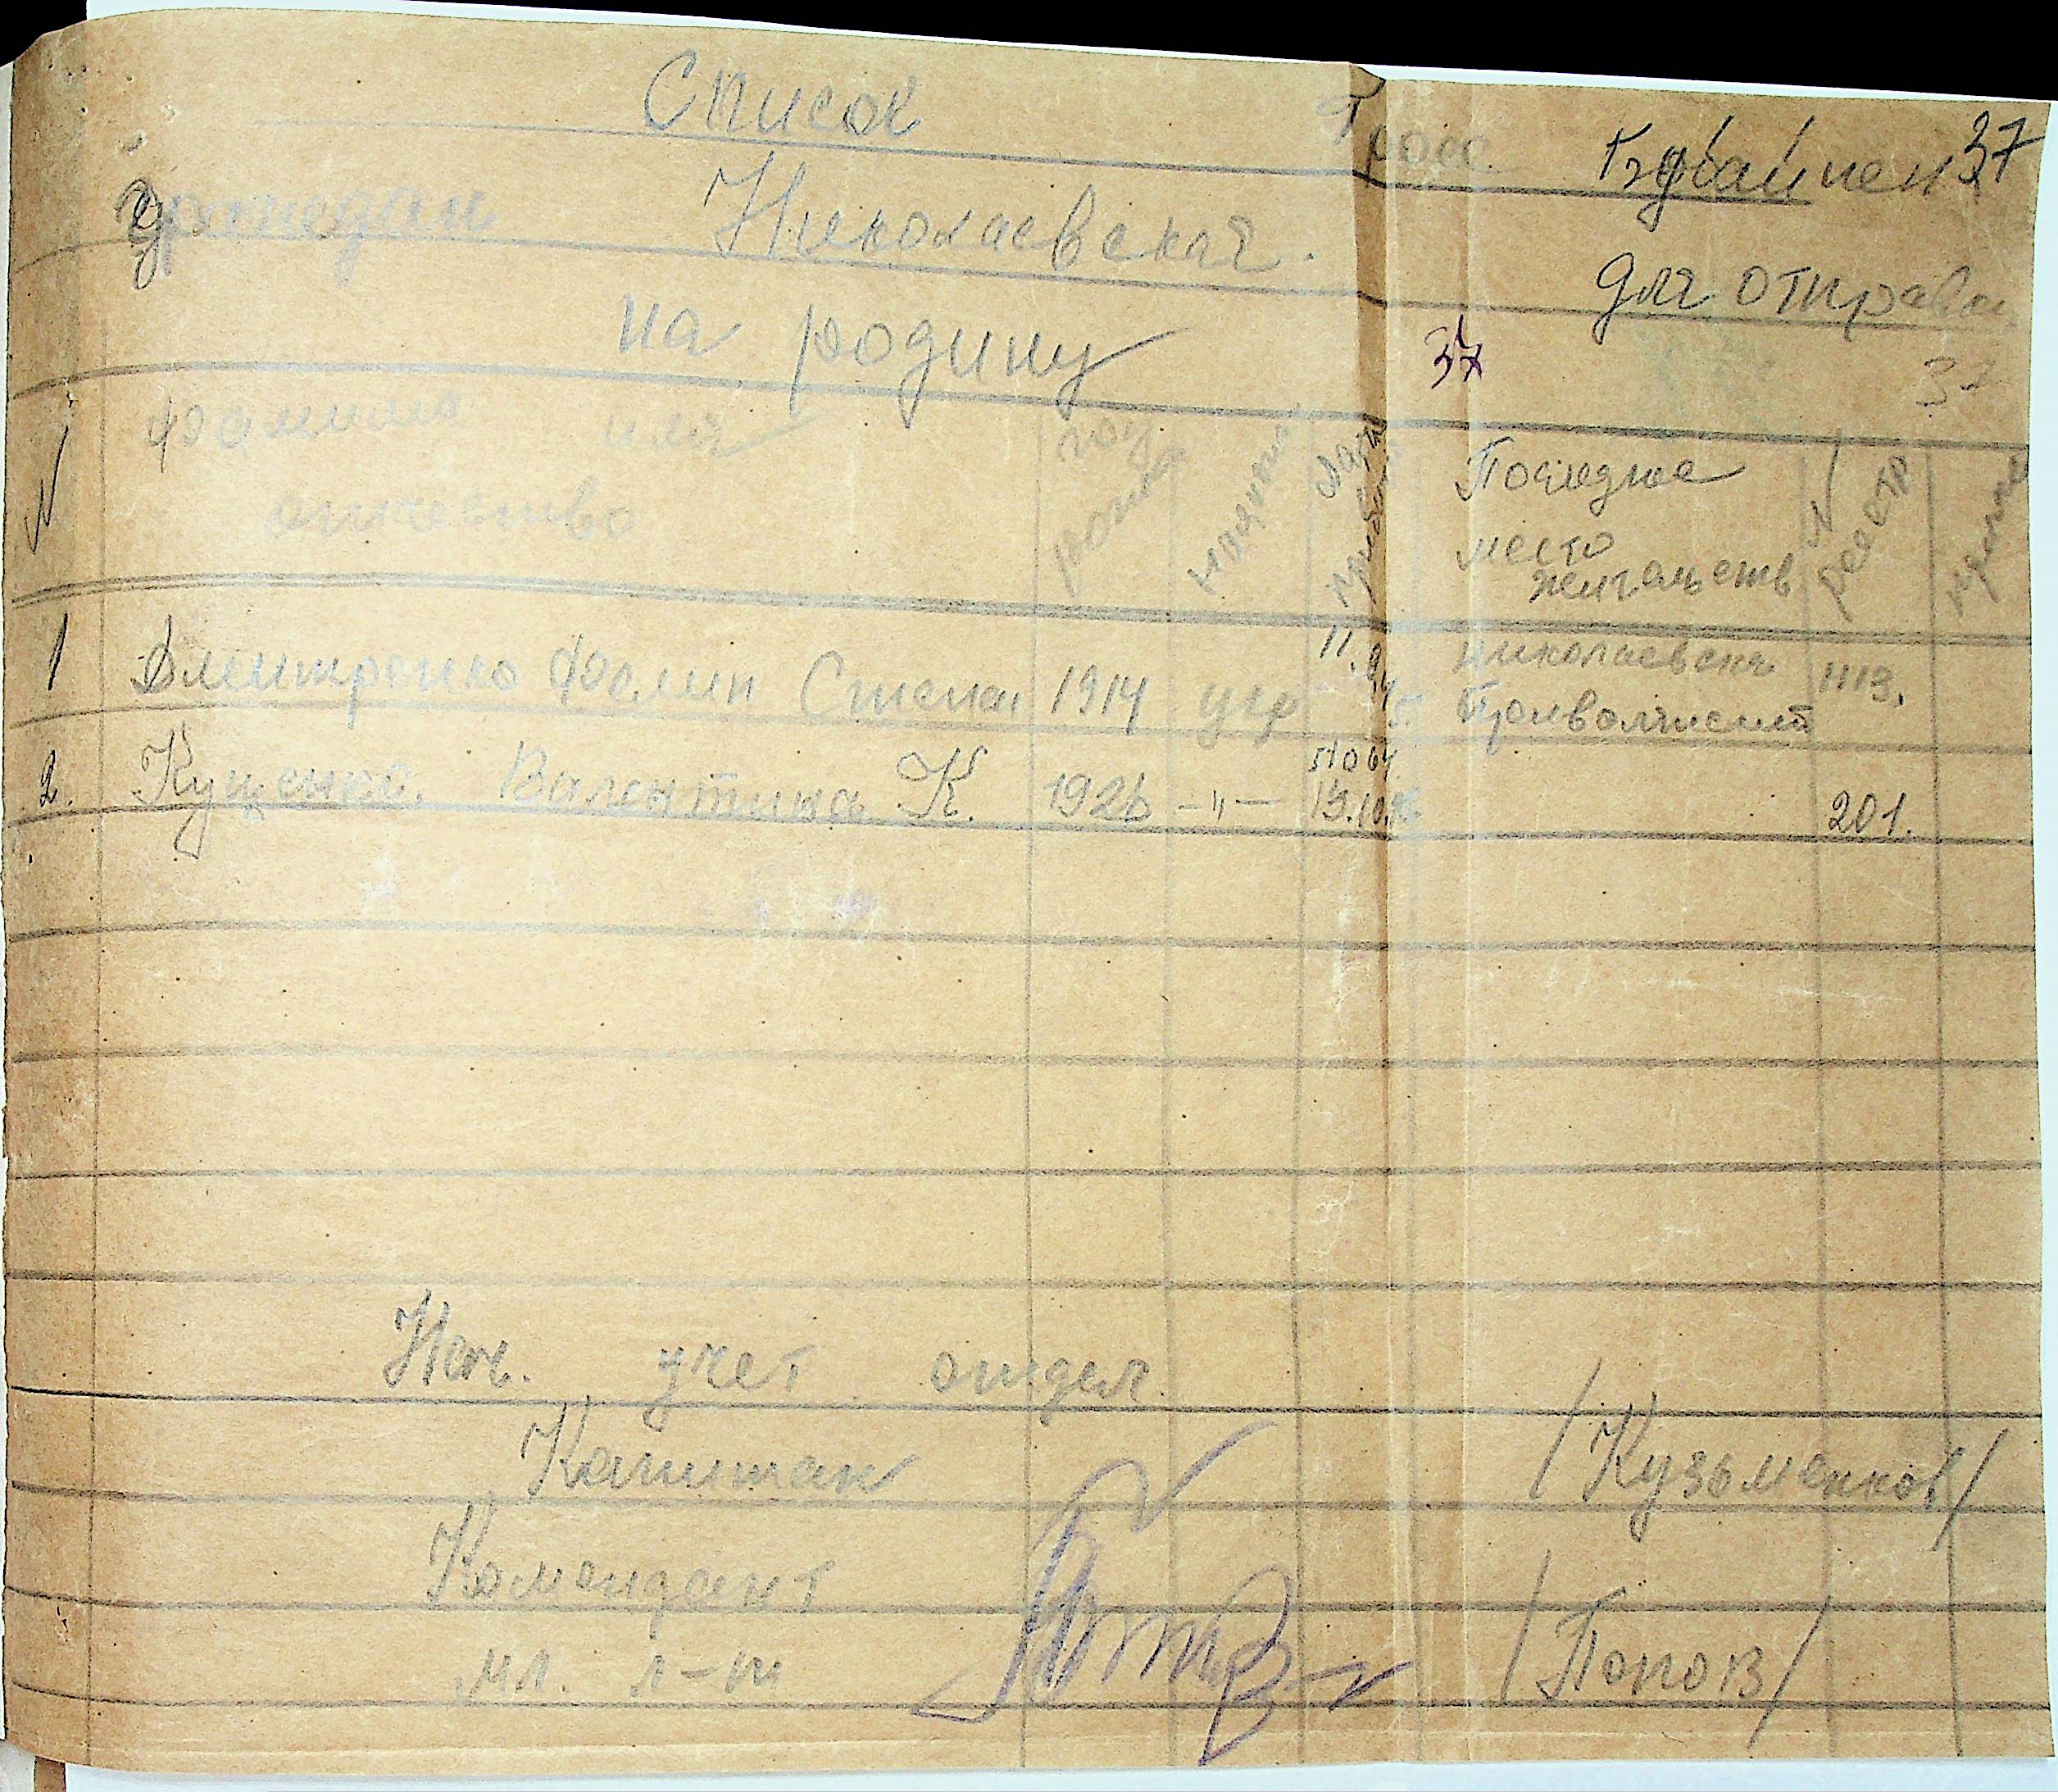 Список
37
граждан Николаевская. для отправки
на родину 37
37
N Фамилия имя отчество год рожд национ Дата прибыт Последнее место жительств N реестр примеч
1 Дмитренко Фомин Степан 1914 укр 11.9.45 Николаевская 1113.
2. Куценко. Валентина К. 1926 -"- 201.
Нач. учет отдел.
Капитан /Кузьменков/
Комендант
мл. л-т /Попов/